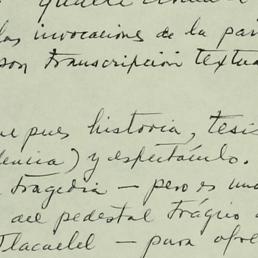 las invocaciones de la par
son transcripción textua
ue pues historia, tesi
dencia) y espectáculo.
tragedia — pero es una
del pedestal trágico
Tlacaelel — para ofre